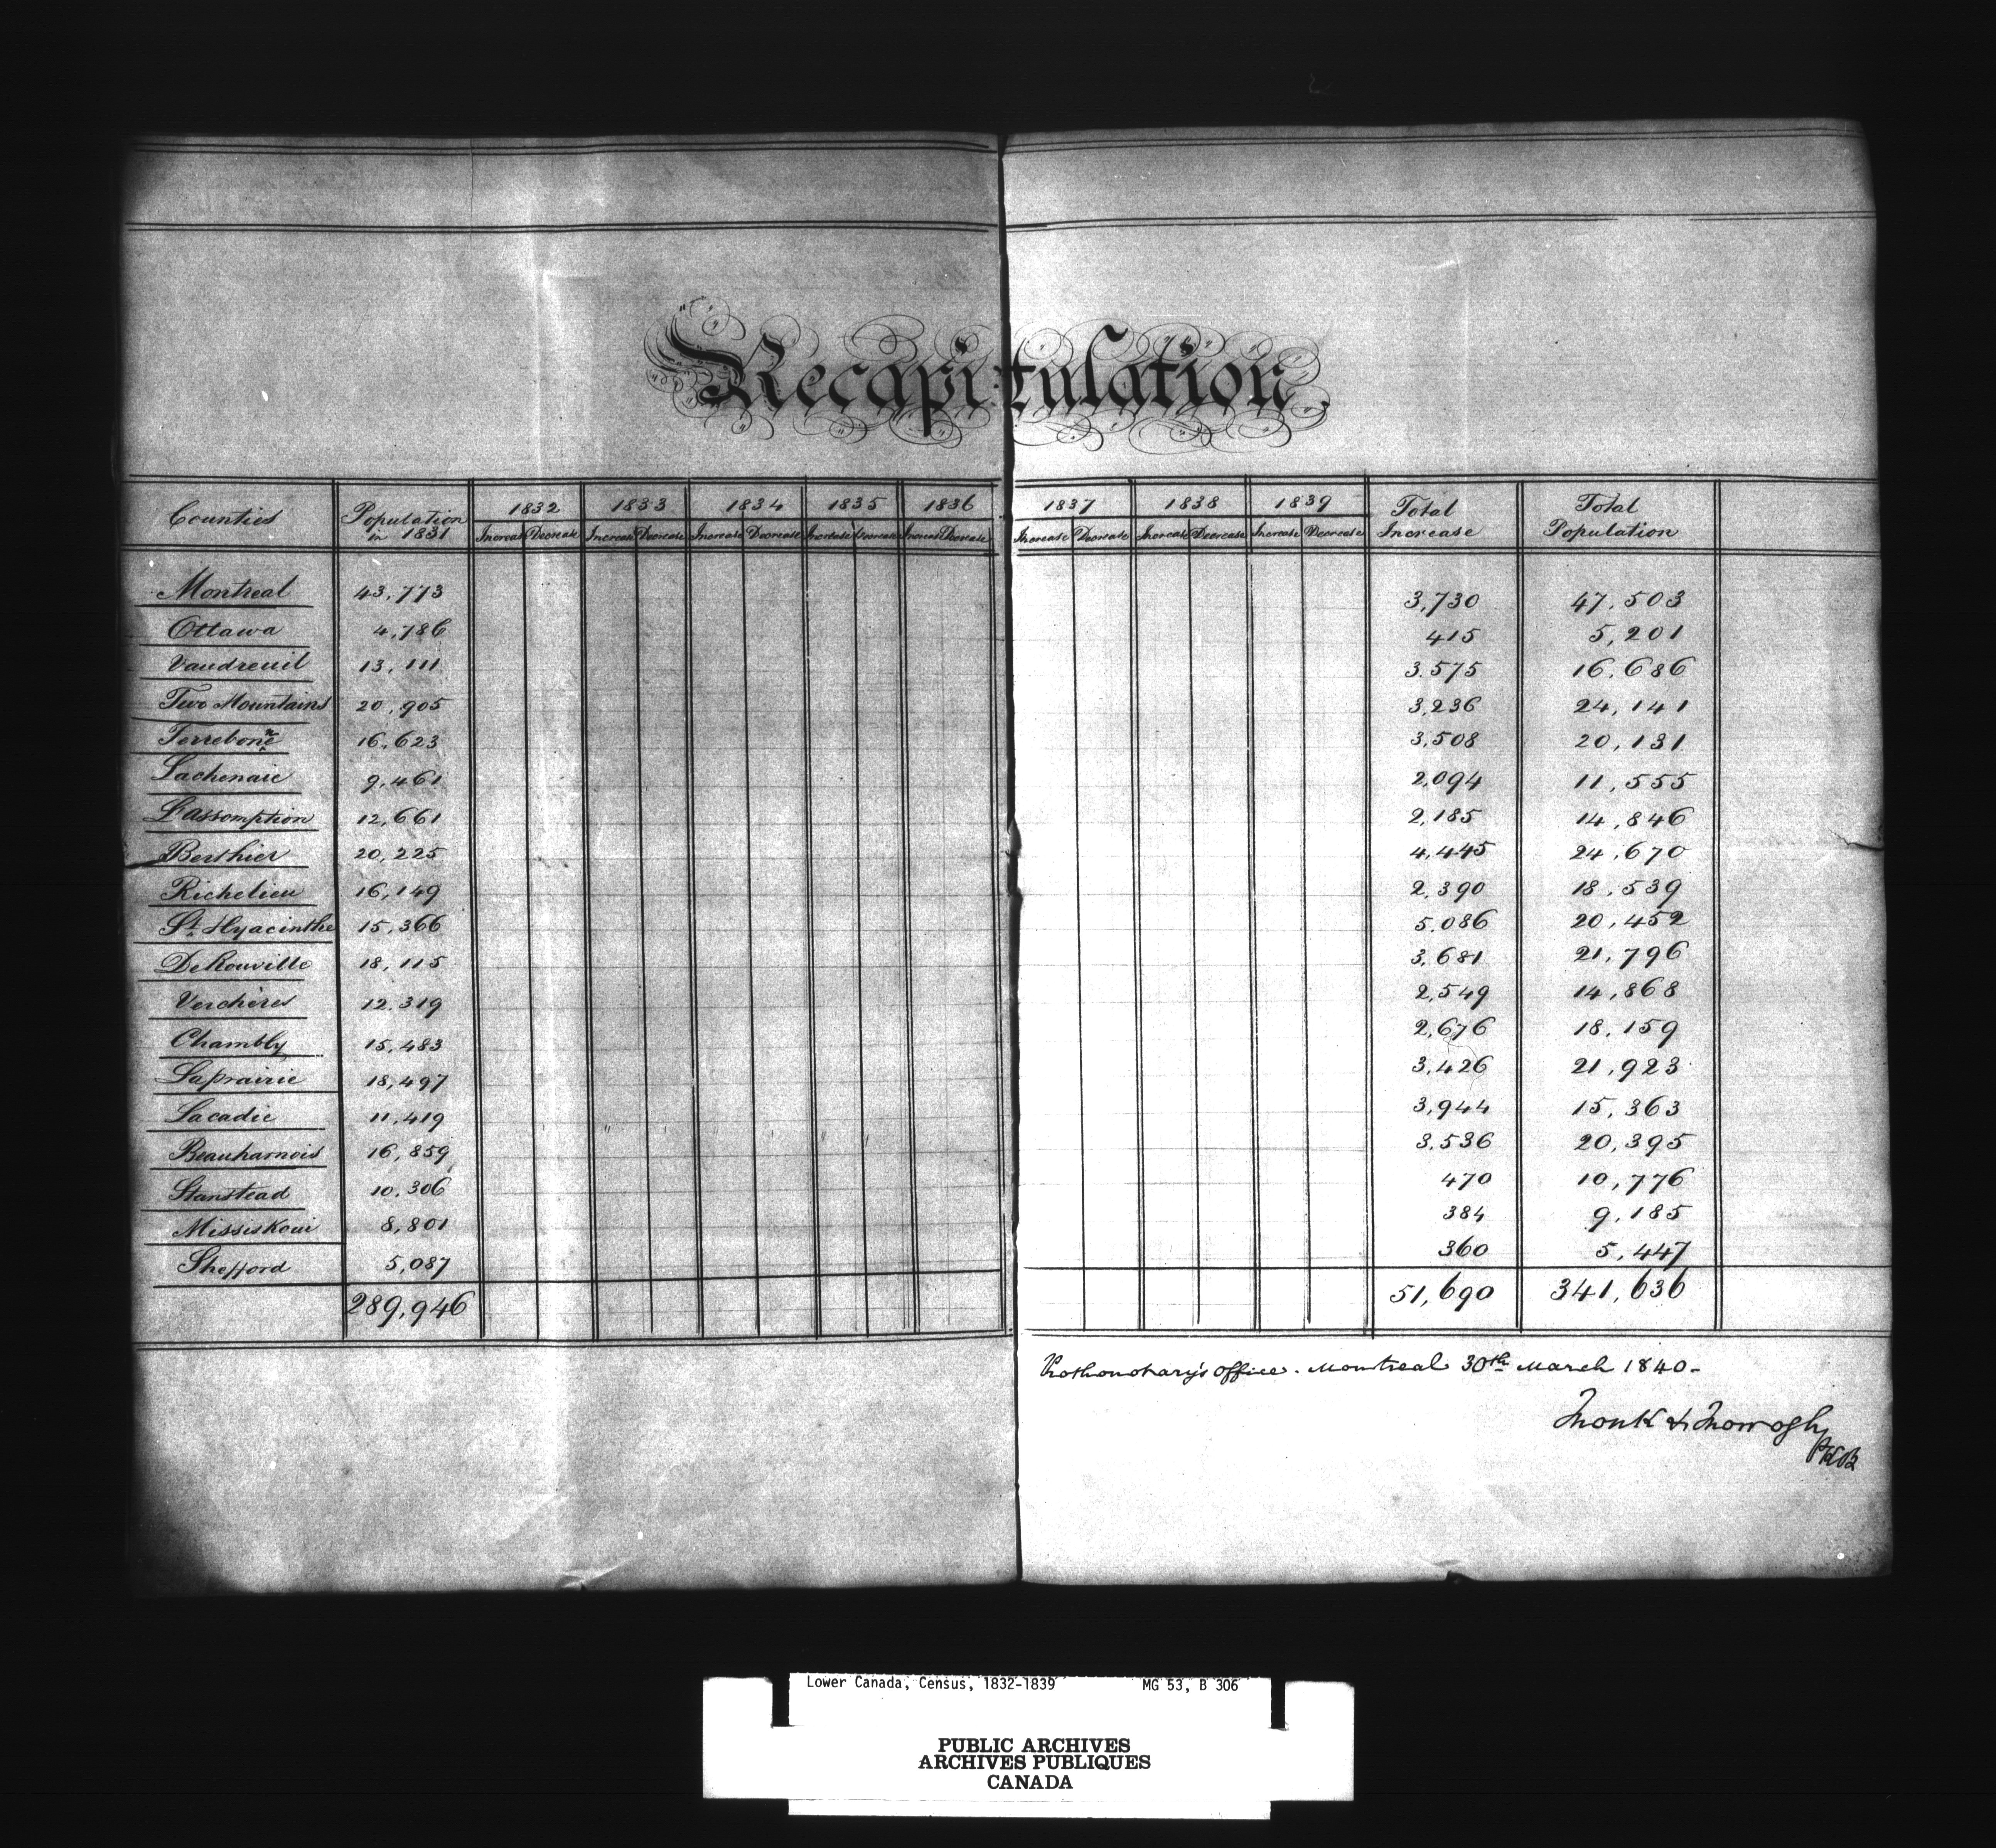 Recapitulation.
Counties Population in 1831 1832 1833 1834 1835 1836 1837 1838 1839 Total Increase Total Population
Increase Decrease Increase Decrease Increase Decrease Increase Decrease Increase Decrease Increase Decrease Increase Decrease Increase Decrease
Montreal 43,773 3,730 47,503
Ottawa 4,786 415 5,201
Vaudreuil 13,111 3,575 16,686
Two Mountains 20,905 3,236 24,141
Terrebonne 16,623 3,508 20,131
Lachenaie 9,461 2,094 11,555
L'assomption 12,661 2,185 14,846
Berthier 20,225 4,445 24,670
Richelieu 16,149 2,390 18,539
St. Hyacinthe 15,366 5,086 20,452
DeRouville 18,115 3,681 21,796
Verchères 12,319 2,549 14,868
Chambly 15,483 2,676 18,159
Laprairie 18,497 3,426 21,923
Lacadie 11,419 3,944 15,363
Beauharnois 16,859 3,536 20,395
Stanstead 10,306 470 10,776
Missiskoui 8,801 384 9,185
Shefford 5,087 360 5,447
289,946 51,690 341,636
Prothonotary's Office. Montreal 30th March 1840-
Monk & Morrogh
PKB
Lower Canada, Census, 1832-1839 MG 53, B 306
PUBLIC ARCHIVES
ARCHIVES PUBLIQUES
CANADA